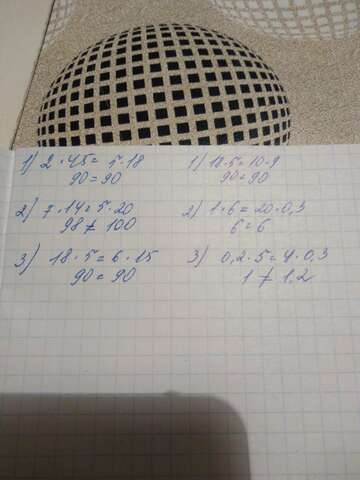 1) 2 · 45 = 5 · 18
90 = 90
2) 7 · 14 = 5 · 20
98 ≠ 100
3) 18 · 5 = 6 · 15
90 = 90
1) 18 · 5 = 10 · 9
90 = 90
2) 1 · 6 = 20 · 0,3
6 = 6
3) 0,2 · 5 = 4 · 0,3
1 ≠ 1,2